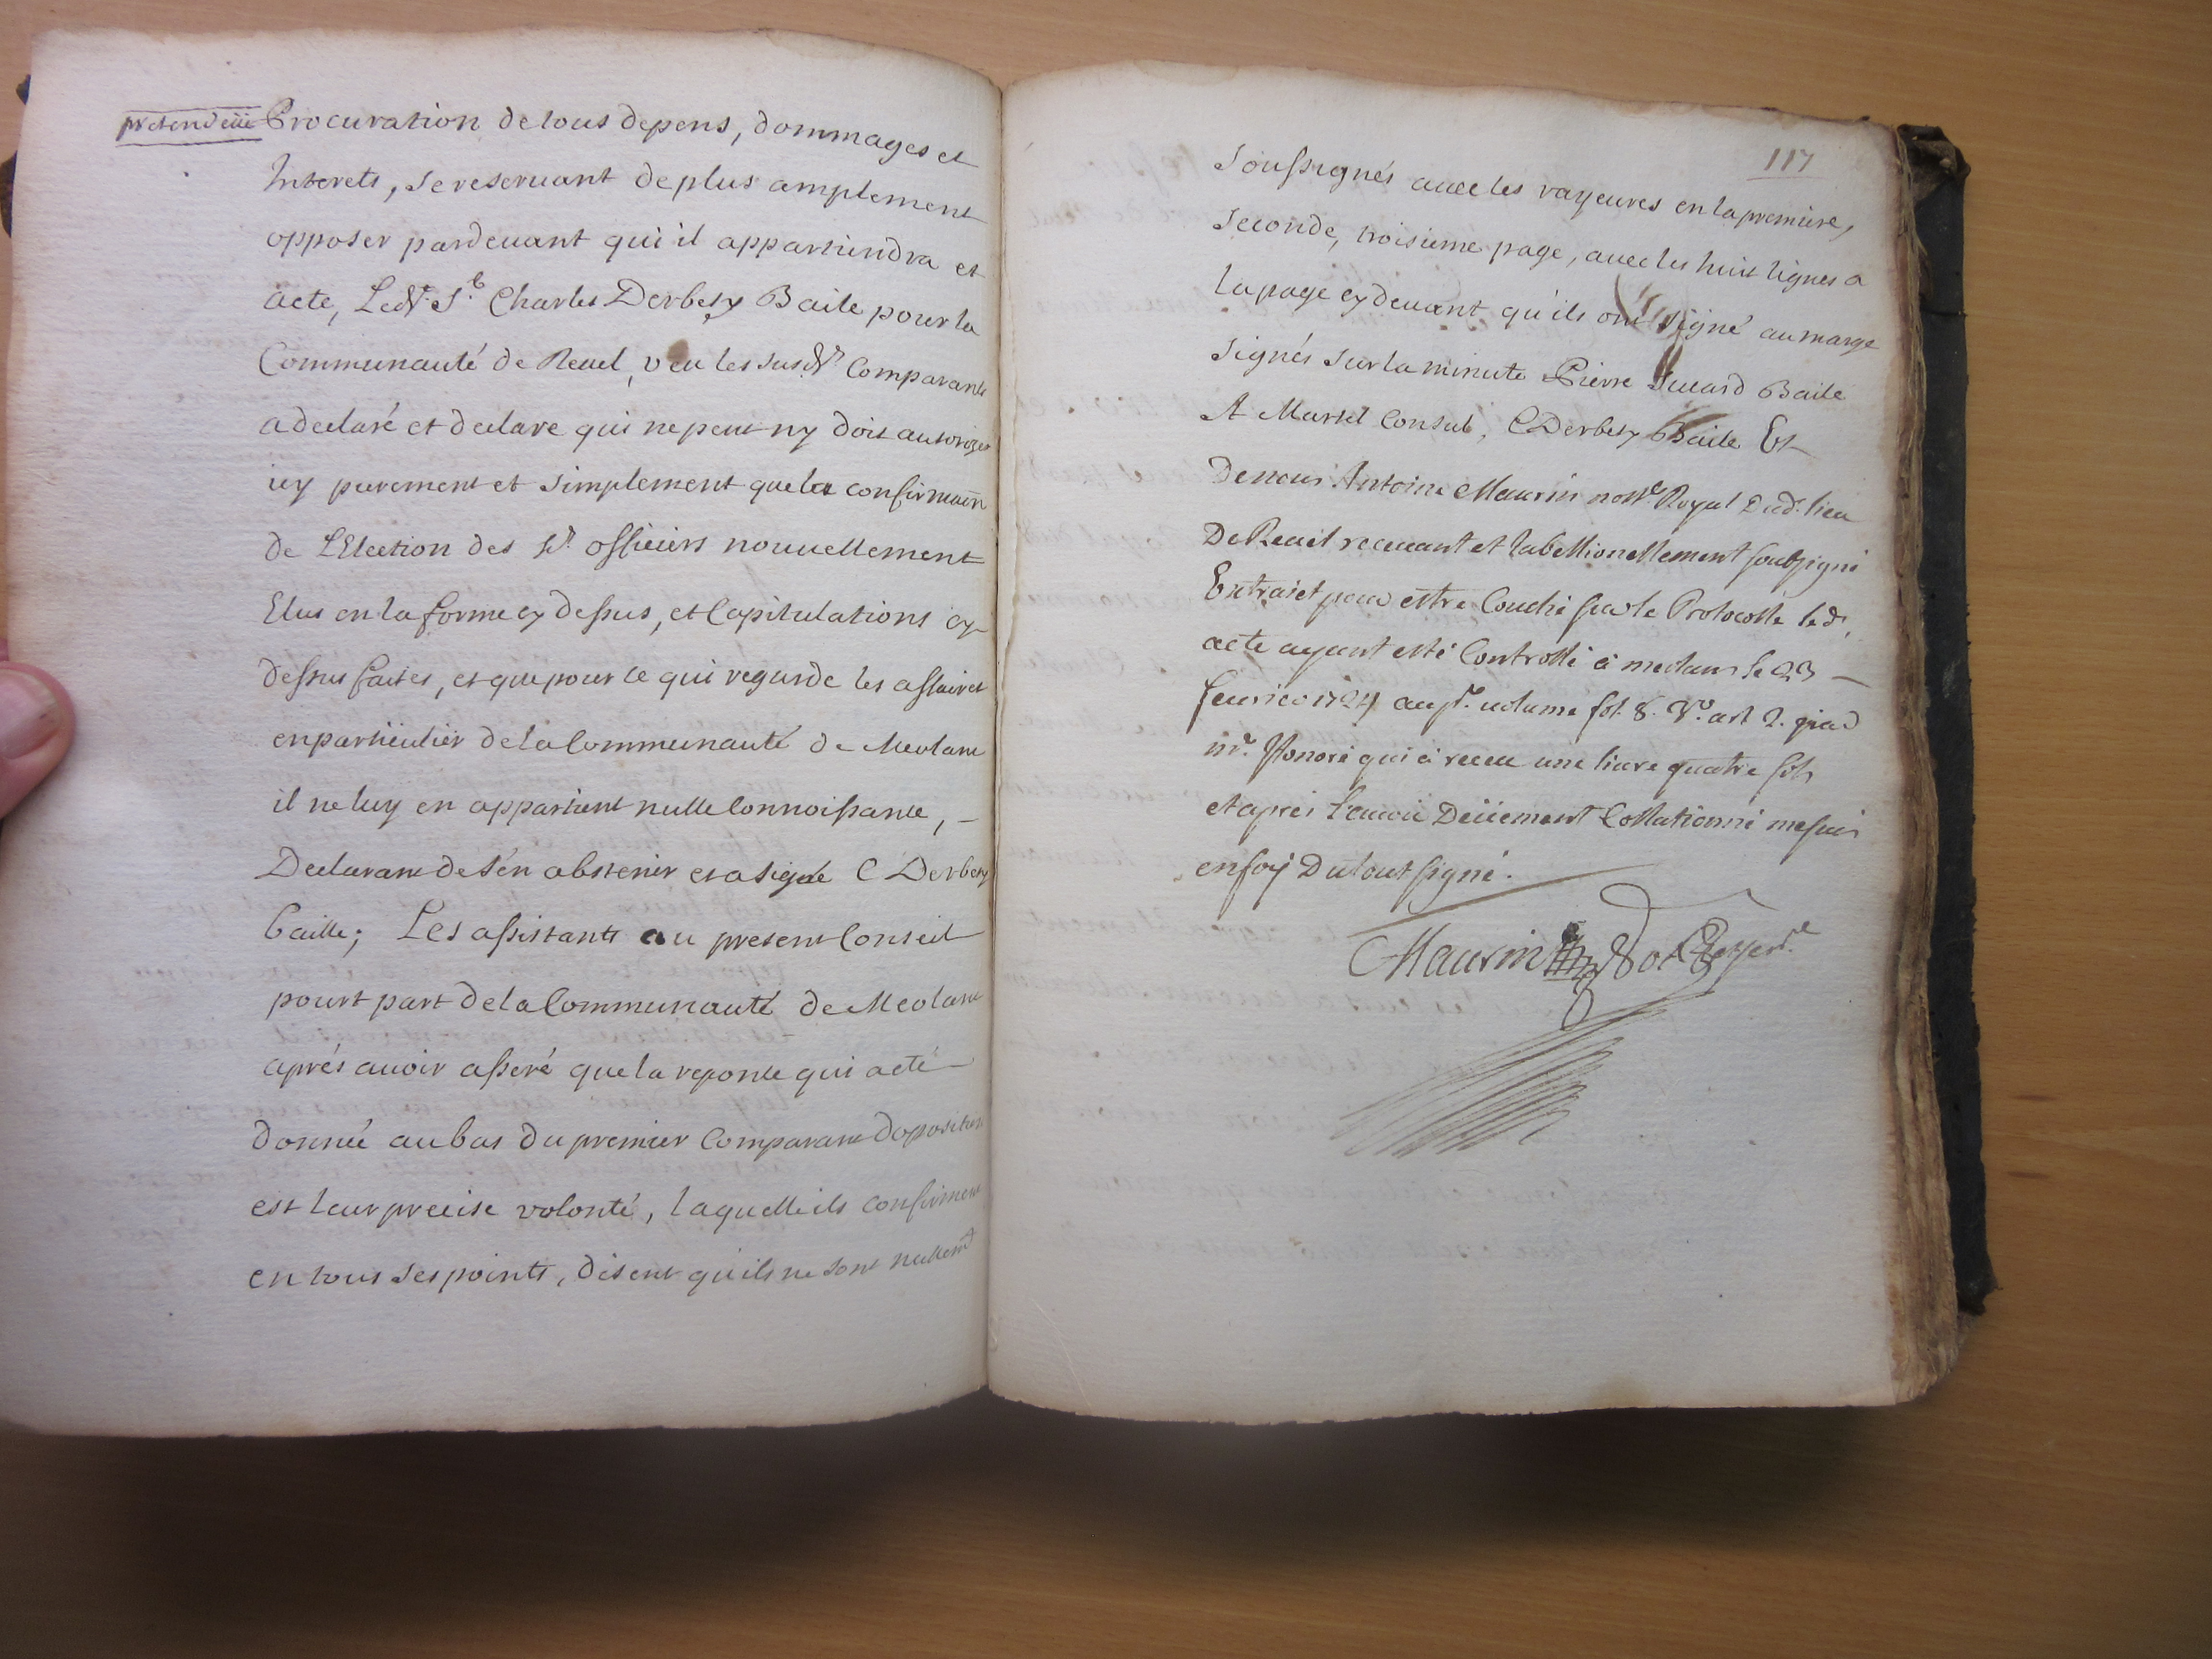 pretendeüe Procuration de tous depens, dommages et
Interets, se reservant de plus amplement
opposer pardevant qui il appartiendra et
acte, Ledt. Sr. Charles Derbesy Baile pour la
Communauté de Revel, veu les susdt. Comparants
a declaré et declare qui ne peut ny doit autoriser
icy purement et simplement que la confirmaon
de LElection des st. officiers nouvellement
Elus en la forme cy dessus, et Capitulations cy
dessus faites, et que pour le qui regarde les affaires
en particulier de la Communauté de Meolans
il ne luy en appartient nulle Connoissance, –
Declarant de s'en abstenir et a signé C Derbesy
baille; Les assistants au present Conseil
pour part de la Communauté de Meolans
aprés avoir asseré que la reponse qui a eté
donnée au bas du premier Comparant dopposition
est leur precise volonté, laquelle ils confirment
en tous ses points, disent qu'ils ne sont nullemt
117
Soussignés avec les rayeures en la premiere,
seconde, troisieme page, avec les huit lignes a
la page cy devant qu'ils ont signé au marge
signés sur la minute Pierre Suard Baile
A Martel Consul, C Derbesy Baile Et
de nous Antoine Maurin nottre Royal dud. lieu
De Revel recevant et tabellionellement soubsigné
Extraict pour estre Couché sur le Protocolle led.
acte ayant esté Controllé à meolans le 23 –
fevrier 1724 au pr. volume fol. 8. Vo. art 2. par
mr. Honoré qui à receu une livre quatre sols
et après l'avoir Deüement Collationné me suis
en foy Du tout signé.
Maurin not Royal